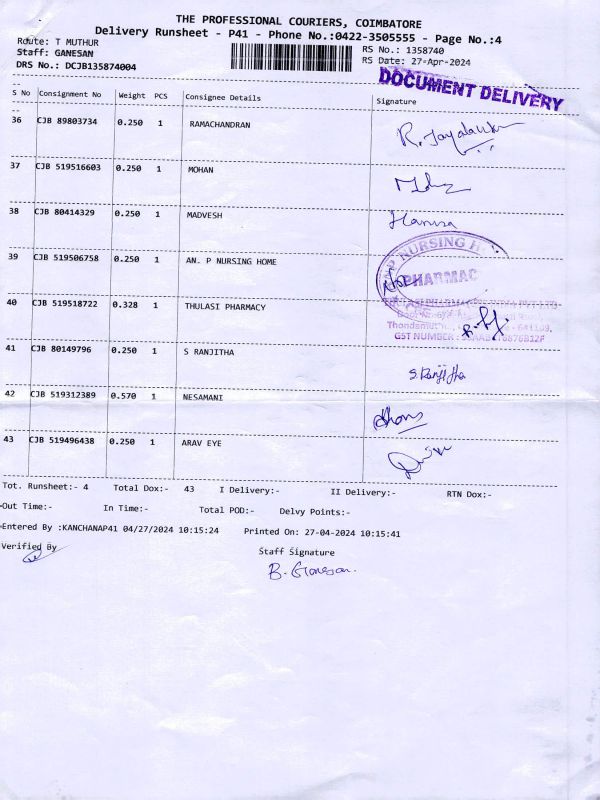 THE PROFESSIONAL COURIERS, COIMBATORE
Delivery Runsheet - P41 - Phone No.:0422-3505555 - Page No.:4
Route: T MUTHUR
RS No.: 1358740
Staff: GANESAN
RS Date: 27-Apr-2024
DRS No.: DCJB135874004
DOCUMENT DELIVERY
S No Consignment No Weight PCS Consignee Details Signature
36 CJB 89803734 0.250 1 RAMACHANDRAN
37 CJB 519516603 0.250 1 MOHAN
38 CJB 80414329 0.250 1 MADVESH
39 CJB 519506758 0.250 1 AN. P NURSING HOME
NURSING
PHARMAC
40 CJB 519518722 0.328 1 THULASI PHARMACY
GST NUMBER
41 CJB 80149796 0.250 1 S RANJITHA
S. Ranjitha
42 CJB 519312389 0.570 1 NESAMANI
43 CJB 519496438 0.250 1 ARAV EYE
Tot. Runsheet:- 4 Total Dox:- 43 I Delivery:- II Delivery:- RTN Dox:-
Out Time:- In Time:- Total POD:- Delvy Points:-
Entered By :KANCHANAP41 04/27/2024 10:15:24 Printed On: 27-04-2024 10:15:41
Verified By
Staff Signature
B. Ganesan.